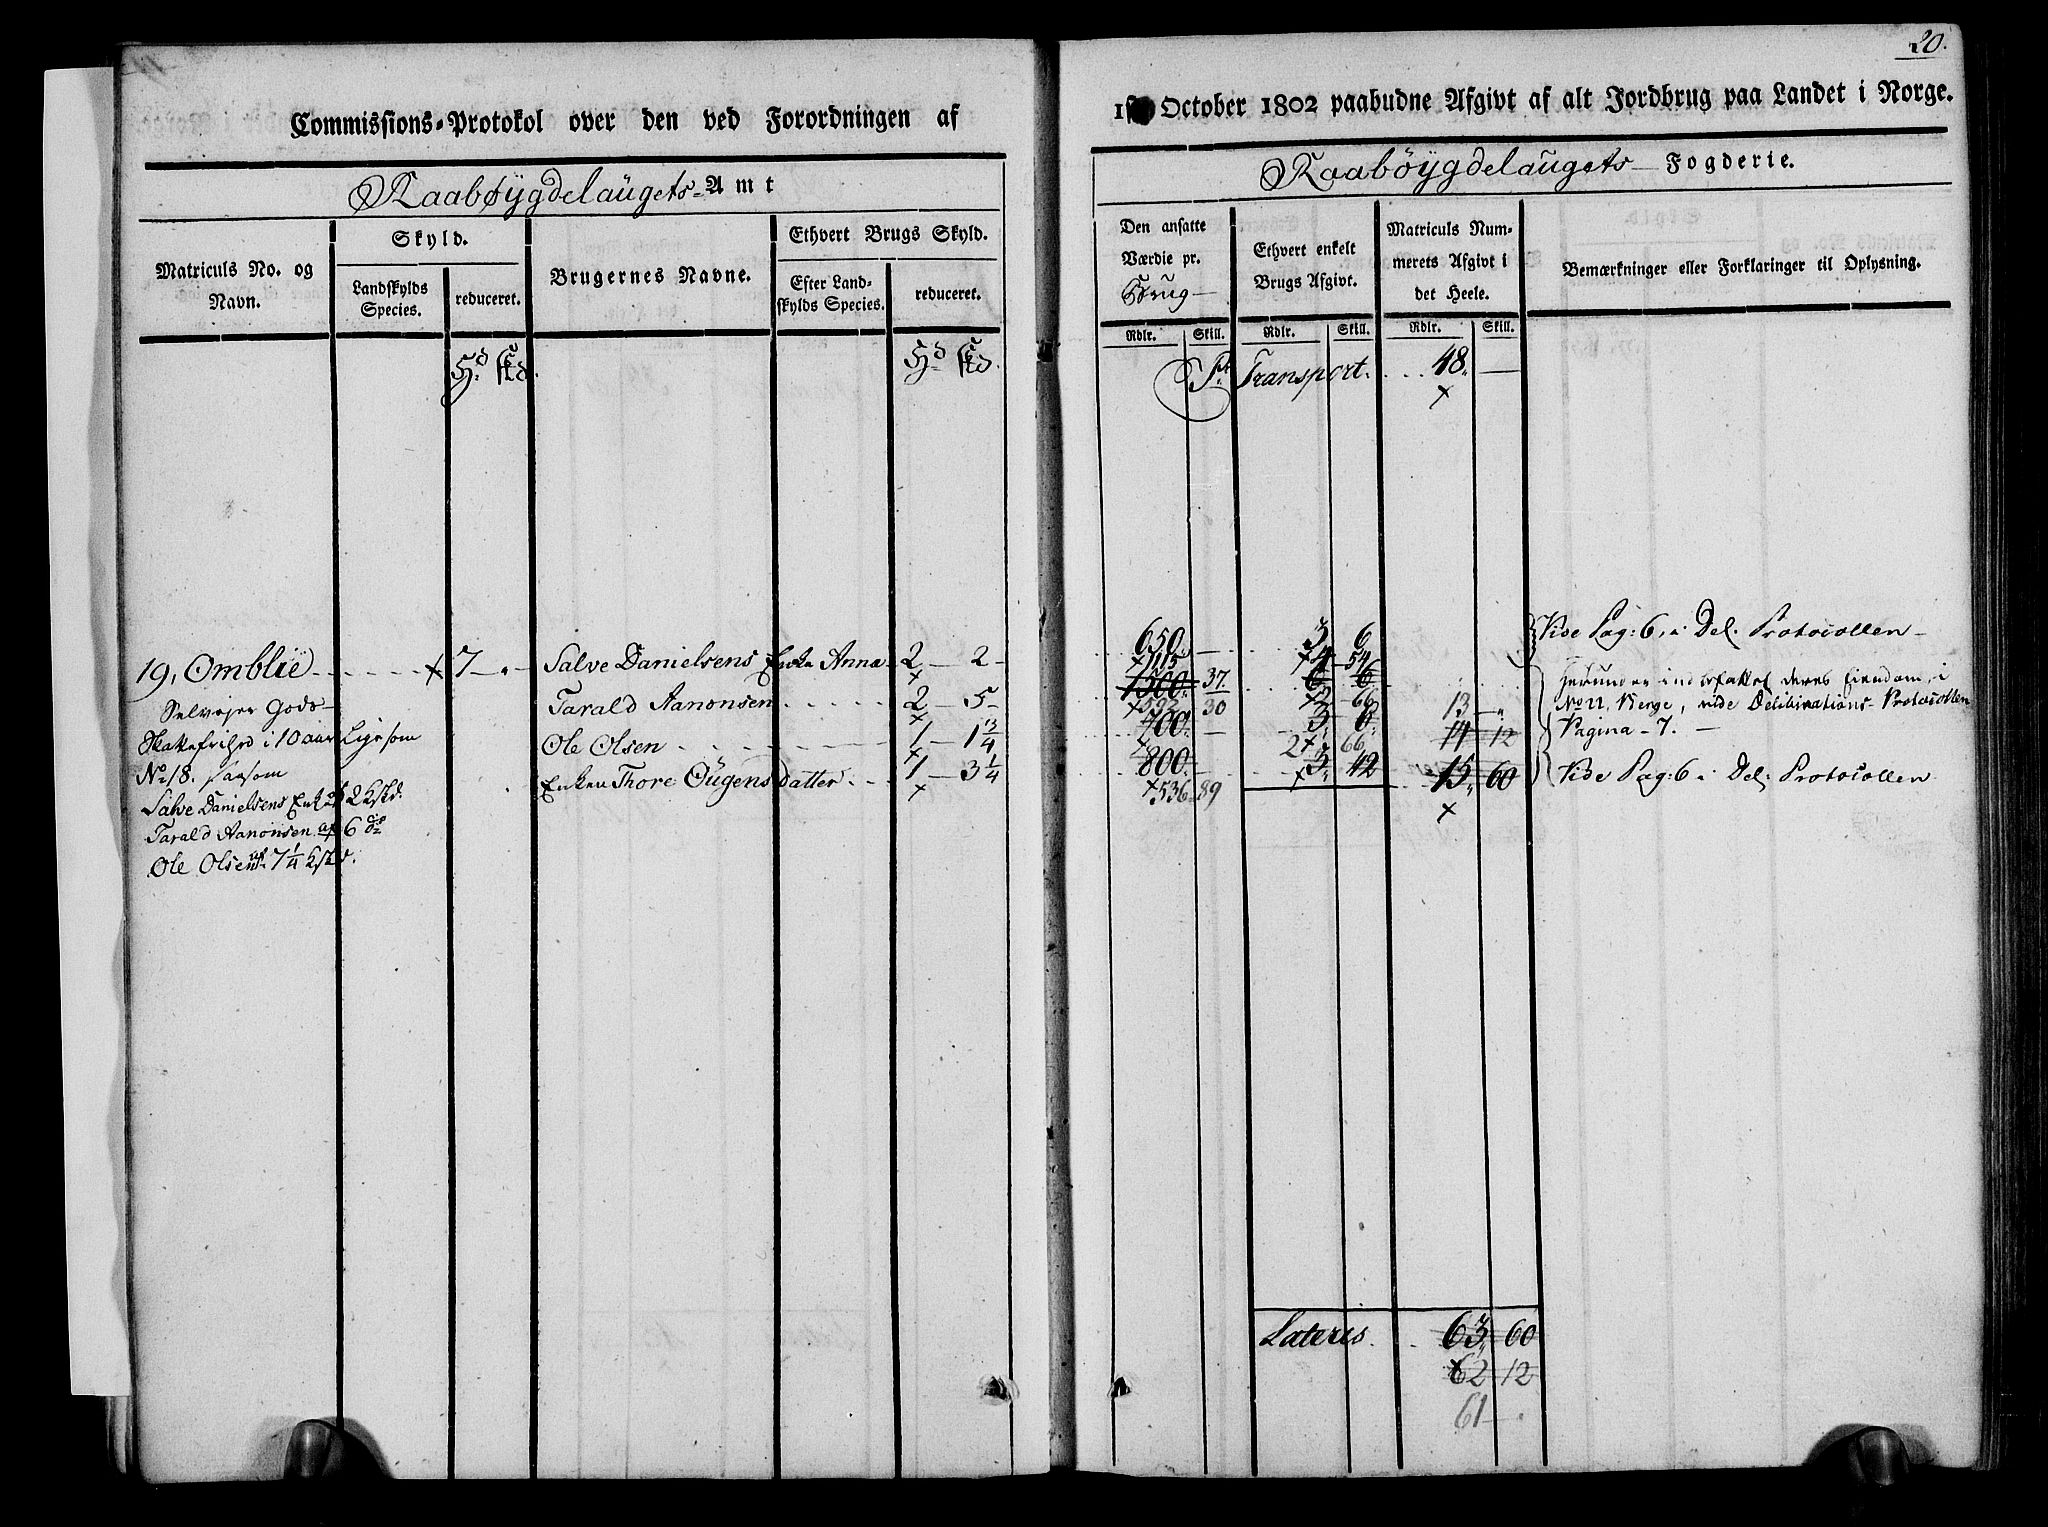 20.
Commissions-Protokol over den ved Forordningen af
1ste October 1802 paabudne Afgivt af alt Jordbrug paa Landet i Norge.
Raabøygdelaugets-Amt
Raabøygdelaugets- Fogderie.
Matriculs No. og Navn.
Skyld.
Landskylds Species.
reduceret.
Brugernes Navne.
Ethvert Brugs Skyld.
Efter Landskylds Species.
reduceret.
Den ansatte Værdie pr. Brug
Ethvert enkelt Brugs Afgivt.
Matriculs Nummerets Afgivt i det Heele.
Bemærkninger eller Forklaringer til Oplysning.
Rdlr. Skill. Rdlr. Skill. Rdlr. Skill.
Hd. Skd.
Hd. Skd.
Pr. Transport. . . . 48. —
x
19, Omblie . . . . . x 7 — „ — Salve Danielsens Enke Anna 2 — 2 —
650 — 3 6
Vide Pag: 6, i Del. Protocollen —
Selvejer Gods
Tarald Aanonsen . . . . . 2 — 5 —
x 1115 37 x 4 54
1500 6 6
No 22, Berge, vide Deliberations-Protocollen
Pagina - 7. —
Skattefrihed i 10 aar Ligesom
No 18. saasom
Ole Olsen . . . . . 1 — 1 3/4
x 592 30 x 2 66 13 — „
700 — 3 8 14 12
Enken Thore Øugens datter . . 1 — 3 1/4
800 — 3 42 15 60
x 536 89 2 66
Vide Pag: 6 i Del: Protocollen
Salve Danielsens Enke af 2 Kskd.
Tarald Aanonsen af 6 do
Ole Olsen af 7 1/4 Kskd.
Lateris . . 63 60
x 62 12
61 — .